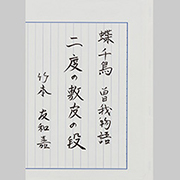 蝶千鳥 曽我物語
二度の敷皮の段
竹本 友和嘉